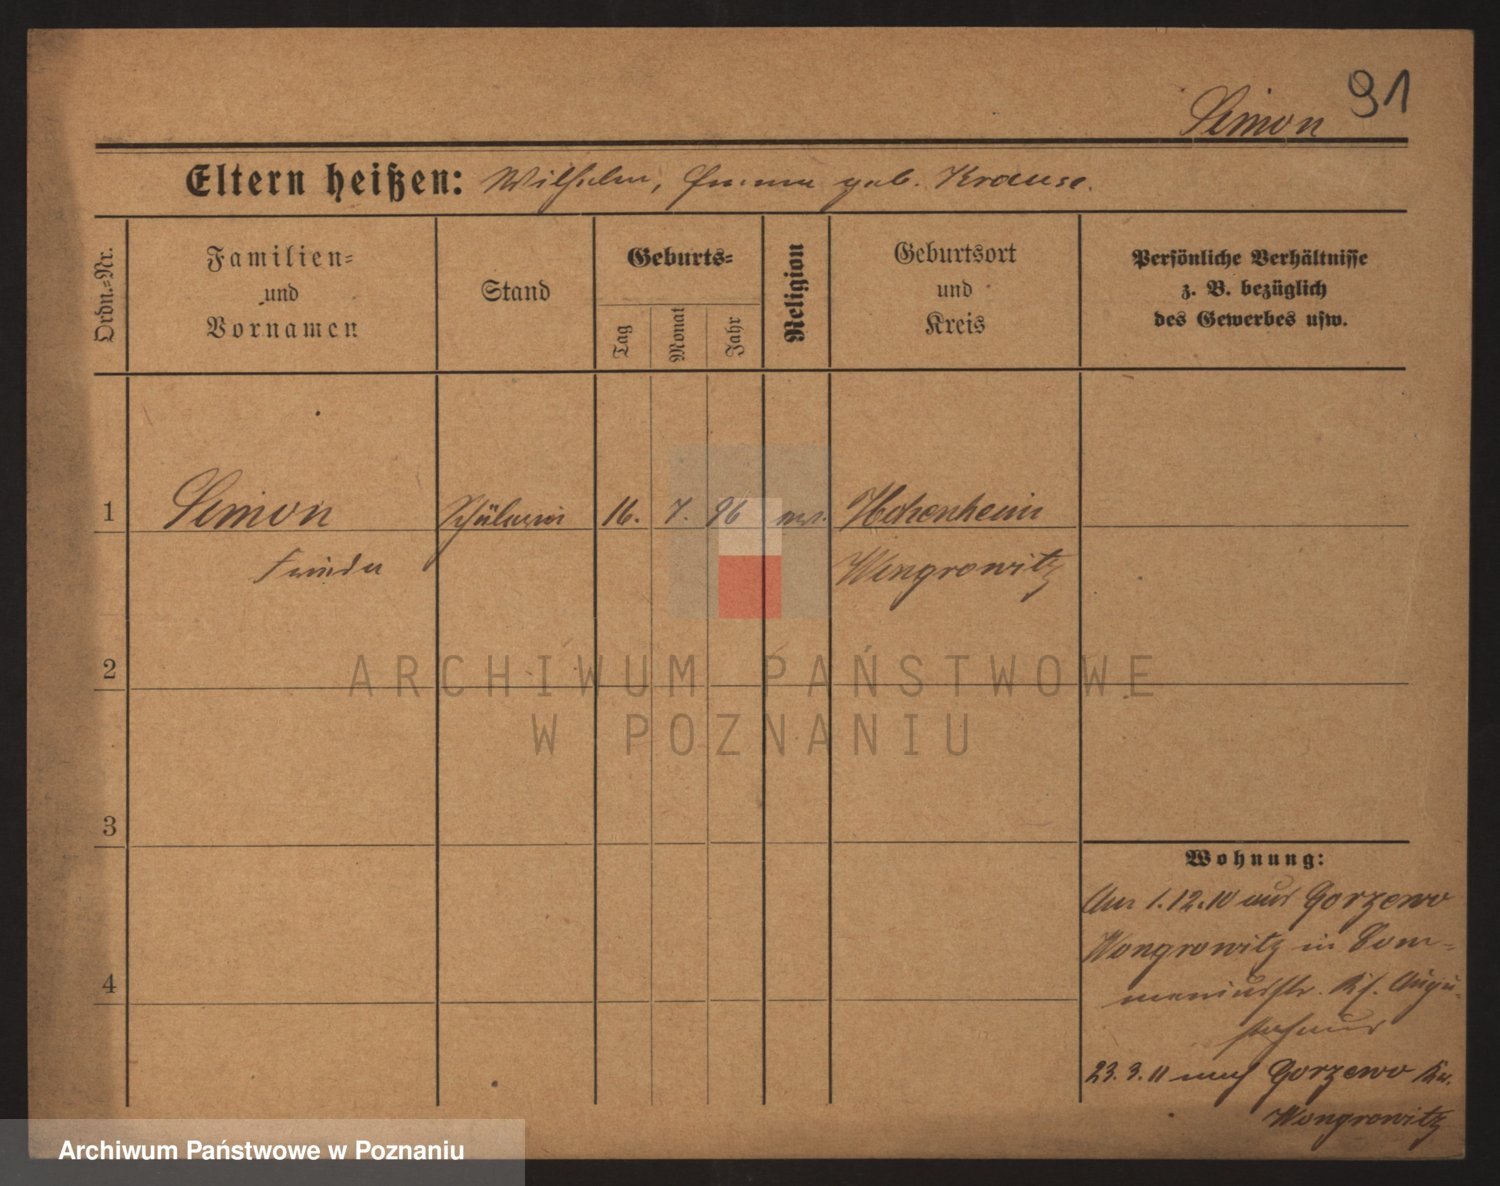 91
Simon
Eltern heißen: Wilhelm, Emma geb. Krause.
Ordn.=Nr.
Familien=
und
Vornamen
Stand
Geburts=
Tag
Monat
Jahr
Religion
Geburtsort
und
Kreis
Persönliche Verhältnisse
z. B. bezüglich
des Gewerbes usw.
1 Simon Schülerin 16. 7. 96 ev. Hohenheim
Frieda Wongrowitz
2
3
4
Wohnung:
Am 1.12.10 aus Gorzewo
Wongrowitz in Com=
meniusstr. Augu=
stahaus
23.3.11 nach Gorzewo Kr.
Wongrowitz
ARCHIWUM PAŃSTWOWE
W POZNANIU
Archiwum Państwowe w Poznaniu